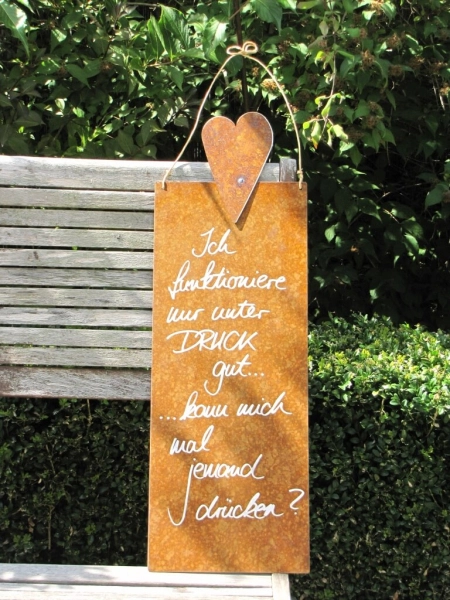 Ich
funktioniere
nur unter
DRUCK
gut...
...kann mich
mal
jemand
drücken?